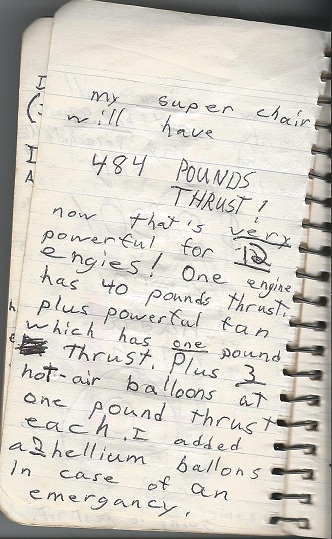 my super chair
will have
484 POUNDS
THRUST!
now that's very
powerful for 12
engies! One engine
has 40 pounds thrust.
plus powerful fan
which has one pound
thrust. Plus 3
hot-air balloons at
one pound thrust
each. I added
a 2 hellium ballons
in case of an
emergancy.